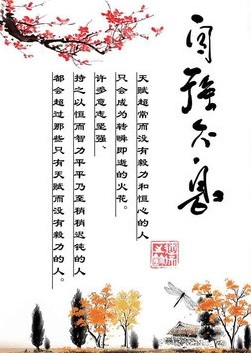 自强不息
天赋超常而没有毅力和恒心的人
只会成为转瞬即逝的火花。
许多意志坚强、
持之以恒而智力平平乃至稍稍迟钝的人
都会超过那些只有天赋而没有毅力的人。